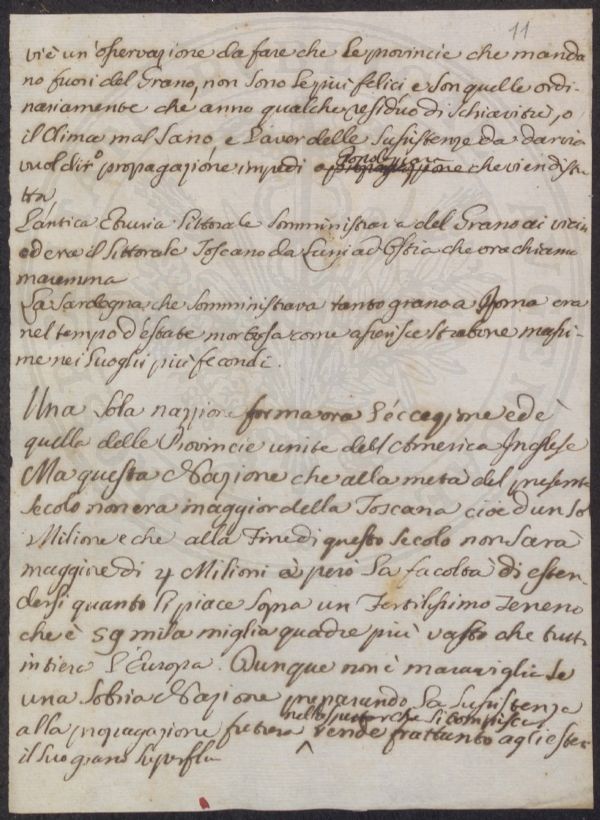 11
vi è un'osservazione da fare che le provincie che manda
no fuori del Grano, non sono le più felici e son quelle ordi-
nariamente che anno qualche residuo di schiavitù, o
il Clima mal sano, e l'aver delle sussistenze da dar via
vuol dir propagazione impedi o che vien distru
tta
L'antica Etruria littorale somministrava del Grano ai vicin
ed era il littorale Toscano da Luni ad Ostia che ora chiamo
maremma
La Sardegna che somministrava tanto grano a Roma era
nel tempo d'estate morbosa come asserisce Strabone massi-
me nei luoghi più fecondi.
Una sola nazzione forma ora l'eccezzione ed è
quella delle Provincie unite dell'America Inglese
Ma questa Nazione che alla metà del presente
secolo non era maggior della Toscana cioè d'un so
Milione e che alla Fine di questo secolo non sarà
maggiore di 4 Milioni à però la facoltà di esten
dersi quanto li piace sopra un Fertilissimo Terreno
che è 59 mila miglia quadre più vasto che tutt
intiera l'Europa. Dunque non è maraviglia se
una sobria Nazione preparando la sussistenza
nello che si compisca
alla propagazione futura vende frattanto agli ester
il suo grano superflu